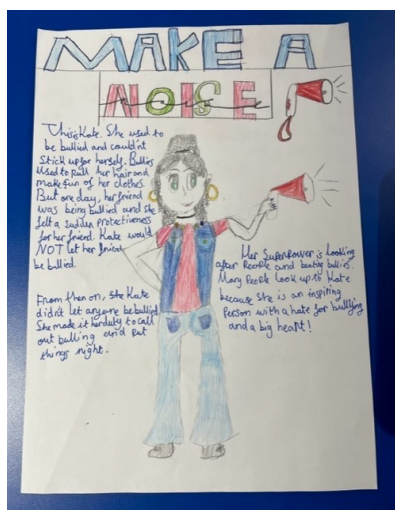 MAKE A
NOISE
This is Kate. She used to
be bullied and couldn't
stick up for herself. Bullies
used to pull her hair and
make fun of her clothes.
But one day, her friend
was being bullied and she
felt a sudden protectiveness
for her friend. Kate would
NOT let her friend
be bullied.
From then on, she Kate
didn't let anyone be bullied.
She made it her duty to call
out bulling and put
things right.
Her Superpower is looking
after People and beating bullies.
Many People look up to Kate
because she is an inspiring
Person with a hate for bullying
and a big heart!